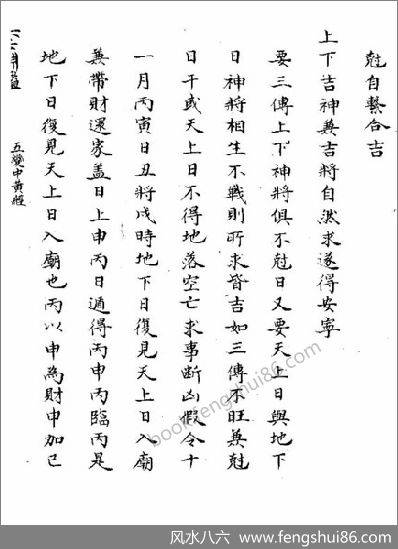 尅自繫合吉
上下吉神兼吉將自然求遂得安寧
要三傳上下神將俱不尅日又要天上日與地下
日神將相生不戰則所求皆吉如三傳不旺兼尅
日干或天上日不得地落空亡求事斷凶假令十
一月丙寅日丑將戌時地下日復見天上日入廟
兼帶財還家蓋日上申丙日遁得丙申丙臨丙是
地下日復見天上日入廟也丙以申為財申加巳
五變中黃經
bookfengshui86.com
风水八六 www.fengshui86.com